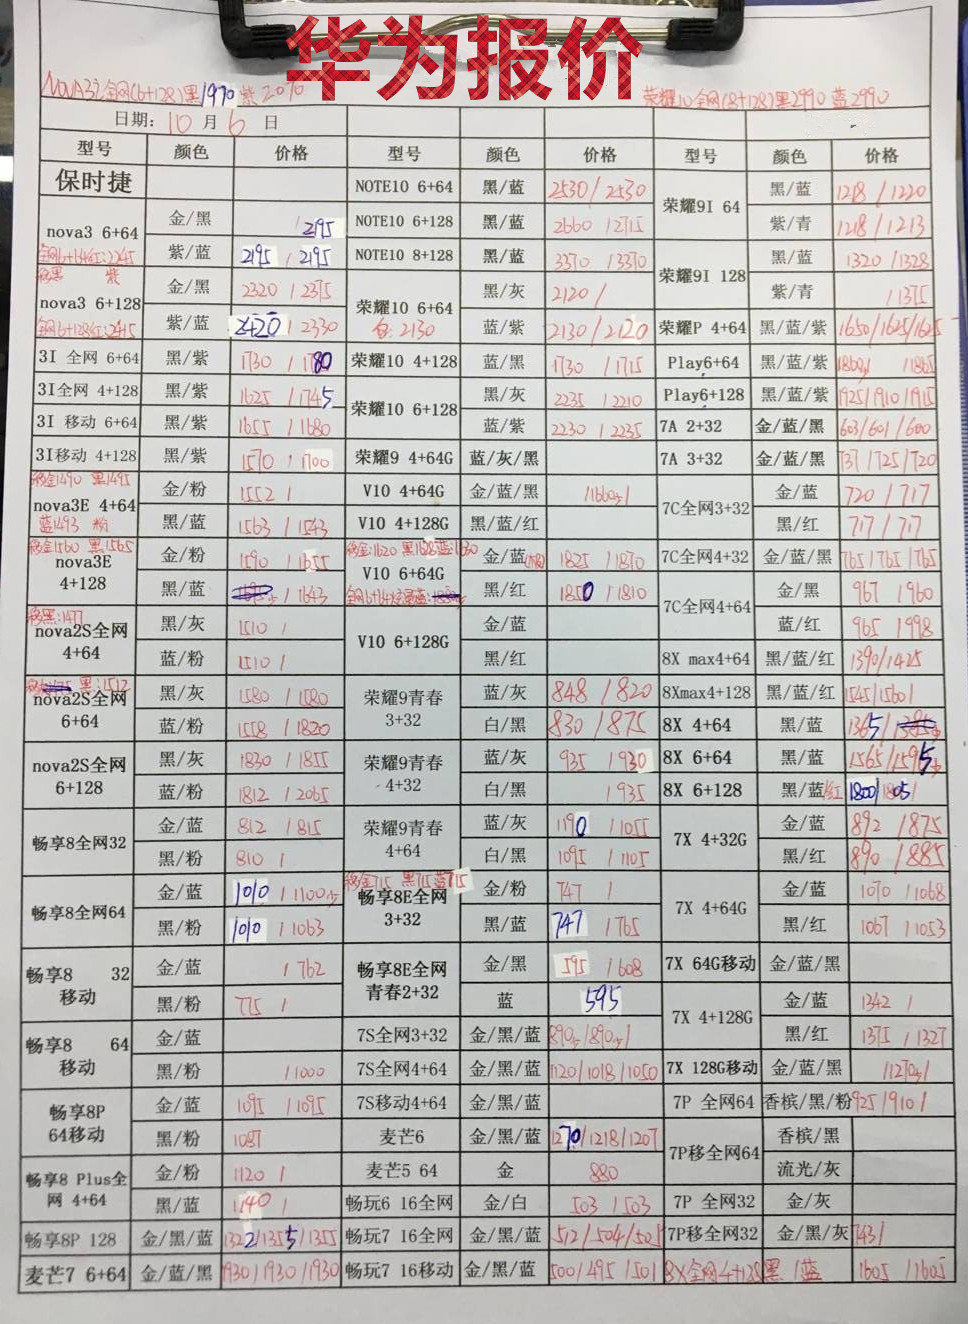 华为报价
NOVA3i全网(6+128)黑1970 紫2070
荣耀10全网(8+128)黑2990 蓝2990
日期: 10 月 6 日
型号 颜色 价格 型号 颜色 价格 型号 颜色 价格
保时捷 NOTE10 6+64 黑/蓝 2530/2530 荣耀9I 64 黑/蓝 1218/1220
nova3 6+64 金/黑 /2195 NOTE10 6+128 黑/蓝 2660/2715 紫/青 1218/1213
全网6+64红:2245 紫/蓝 2195/2195 NOTE10 8+128 黑/蓝 3370/3370 荣耀9I 128 黑/蓝 1320/1328
nova3 6+128 金/黑 2320/2375 荣耀10 6+64 黑/灰 2120/ 紫/青 /1375
全网6+128红:2415 紫/蓝 2420/2330 白:2130 蓝/紫 2130/2120 荣耀P 4+64 黑/蓝/紫 1650/1625/1625
3I 全网 6+64 黑/紫 1730/1780 荣耀10 4+128 蓝/黑 1730/1715 Play6+64 黑/蓝/紫 /1865
3I全网 4+128 黑/紫 1625/1745 荣耀10 6+128 黑/灰 2235/2210 Play6+128 黑/蓝/紫 1925/1910/1915
3I 移动 6+64 黑/紫 1655/1680 蓝/紫 2230/2235 7A 2+32 金/蓝/黑 603/601/600
3I移动 4+128 黑/紫 1570/1700 荣耀9 4+64G 蓝/灰/黑 7A 3+32 金/蓝/黑 737/725/720
移金1490 黑1495
nova3E 4+64 金/粉 1552/ V10 4+64G 金/蓝/黑 7C全网3+32 金/蓝 720/717
蓝1493 粉 黑/蓝 1563/1543 V10 4+128G 黑/蓝/红 黑/红 717/717
移金1560 黑1565
nova3E 4+128 金/粉 1590/1655 V10 6+64G 金/蓝 1825/1870 7C全网4+32 金/蓝/黑 765/765/765
黑/蓝 /1643 黑/红 1850/1810 7C全网4+64 金/黑 967/960
移黑:1477
nova2S全网 4+64 黑/灰 1510/ V10 6+128G 金/蓝 蓝/红 965/998
蓝/粉 1510/ 黑/红 8X max4+64 黑/蓝/红 1390/1425
黑:1512
nova2S全网 6+64 黑/灰 1580/1580 荣耀9青春 3+32 蓝/灰 848/820 8Xmax4+128 黑/蓝/红 1545/1560/
蓝/粉 1558/1820 白/黑 830/875 8X 4+64 黑/蓝 1365/
nova2S全网 6+128 黑/灰 1830/1855 荣耀9青春 4+32 蓝/灰 935/930 8X 6+64 黑/蓝 1565/1595
蓝/粉 1812/2065 白/黑 /935 8X 6+128 黑/蓝/红 1800/1805/
畅享8全网32 金/蓝 812/815 荣耀9青春 4+64 蓝/灰 1190/1055 7X 4+32G 金/蓝 892/875
黑/粉 810/ 白/黑 1095/1105 黑/红 890/885
移金715 黑715 蓝715
畅享8全网64 金/蓝 1010/1100 畅享8E全网 3+32 金/粉 747/ 7X 4+64G 金/蓝 1070/1068
黑/粉 1010/1063 黑/蓝 747/765 黑/红 1067/1053
畅享8 32 移动 金/蓝 /762 畅享8E全网 青春2+32 金/黑 595/608 7X 64G移动 金/蓝/黑
黑/粉 775/ 蓝 595 7X 4+128G 金/蓝 1342/
畅享8 64 移动 金/蓝 7S全网3+32 金/黑/蓝 890/890/ 黑/红 1375/1327
黑/粉 /1000 7S全网4+64 金/黑/蓝 1120/1018/1050 7X 128G移动 金/蓝/黑 /1270/
畅享8P 64移动 金/蓝 1095/1095 7S移动4+64 金/黑/蓝 7P 全网64 香槟/黑/粉 925/910/
黑/粉 1087 麦芒6 金/黑/蓝 1270/1218/1207 7P移全网64 香槟/黑
畅享8 Plus全网 4+64 金/粉 1120/ 麦芒5 64 金 880 流光/灰
黑/蓝 1140/ 畅玩6 16全网 金/白 503/503 7P 全网32 金/灰
畅享8P 128 金/黑/蓝 1322/1355/1355 畅玩7 16全网 金/黑/蓝 512/504/505 7P移全网32 金/黑/灰 743/
麦芒7 6+64 金/蓝/黑 1930/1930/1930 畅玩7 16移动 金/黑/蓝 500/495/501 8X全网4+128 黑/蓝 1605/1605